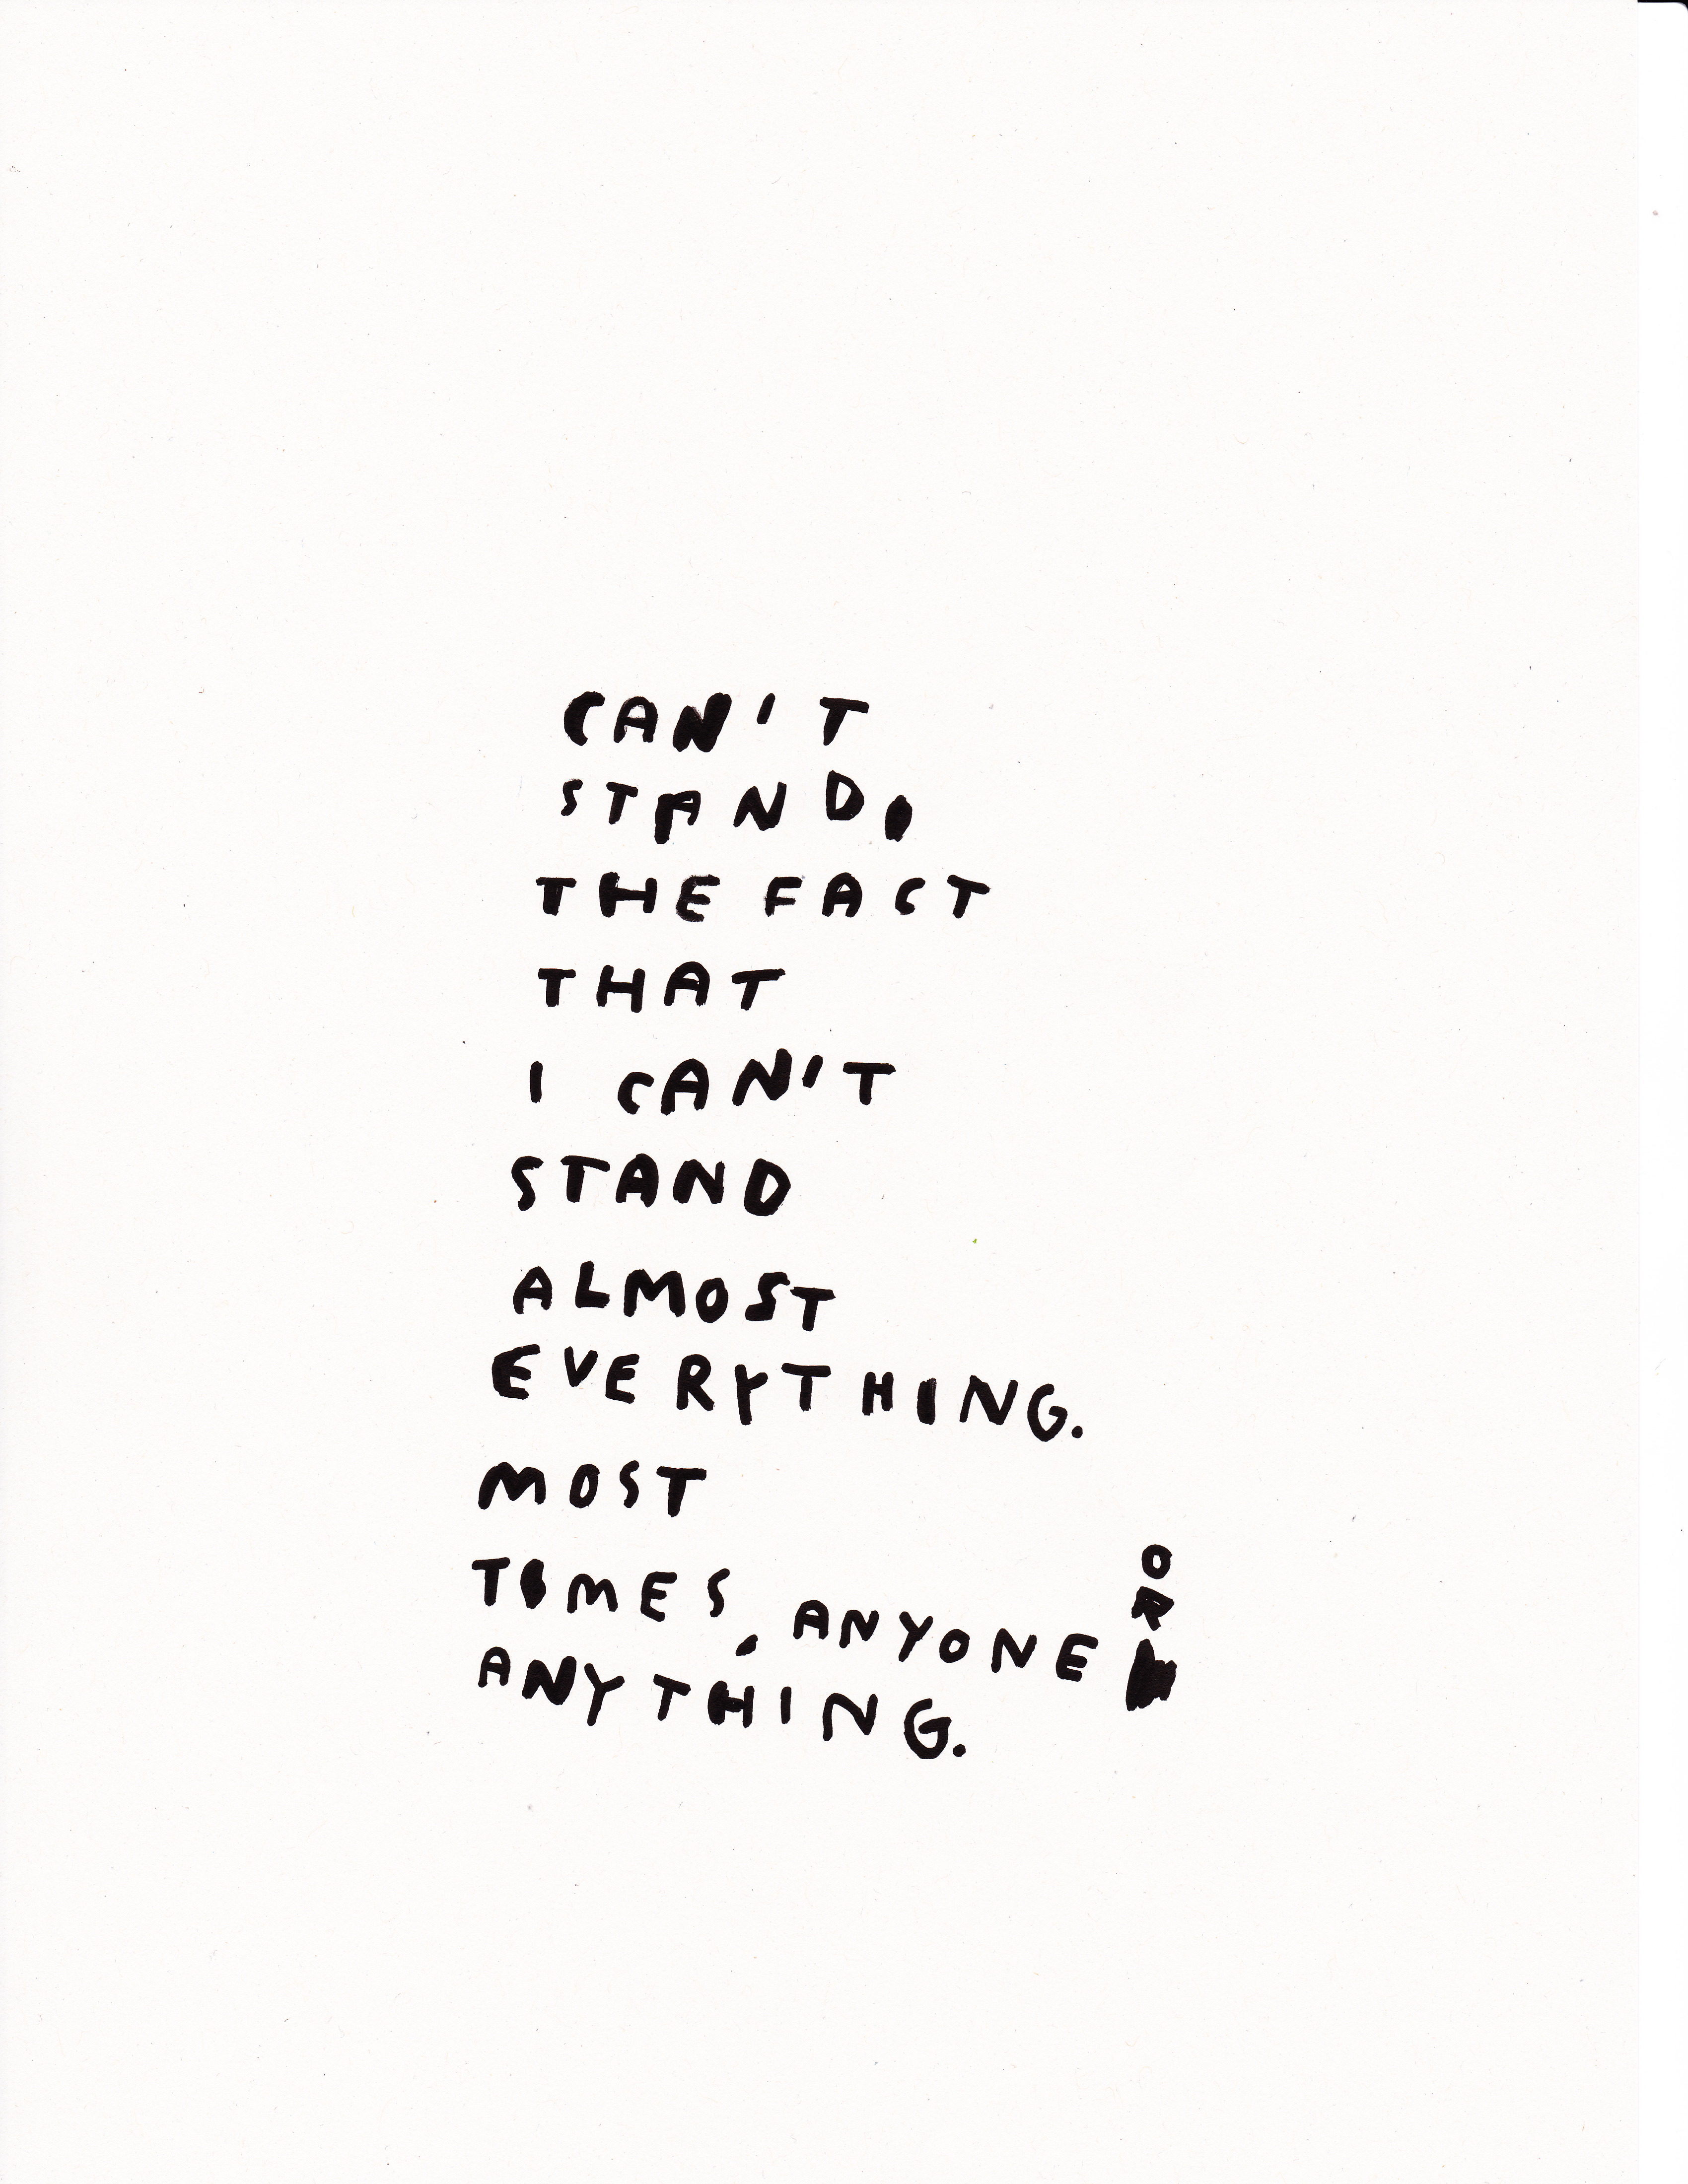 CAN'T
STAND,
THE FACT
THAT
I CAN'T
STAND
ALMOST
EVERYTHING.
MOST
TIMES, ANYONE OR
ANYTHING.